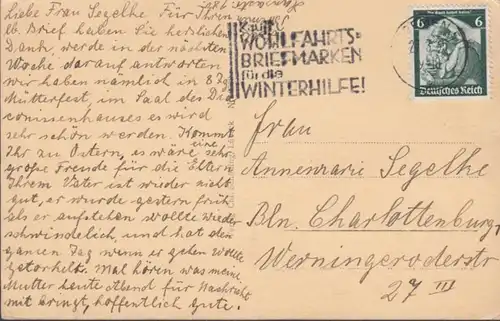 Liebe Frau Segelke Für Ihren
lb. Brief haben Sie herzlichen
Dank, werde in der nächsten
Woche darauf antworten
wir haben nämlich in 8 Tg.
Mütterfest, im Saal des Dia
conissenhauses es wird
sehr schön werden. Kommt
Ihr zu Ostern, es wäre eine sehr
große Freude für die Eltern
Ihrem Vater ist wieder nicht
gut, er wurde gestern früh
als er aufstehen wollte wieder
schwindelich, und hat den
ganzen Tag wenn er gehen wollte
getorkelt. Mal hören was meine
Mutter heute Abend für Nachricht
mit bringt, hoffentlich gute.
Kauft
WOHLFAHRTS-
BRIEFMARKEN
für die
WINTERHILFE!
6 6
Deutsches Reich
Frau
Annemarie Segelke
Bln. Charlottenburg
Werningeroderstr
27 III